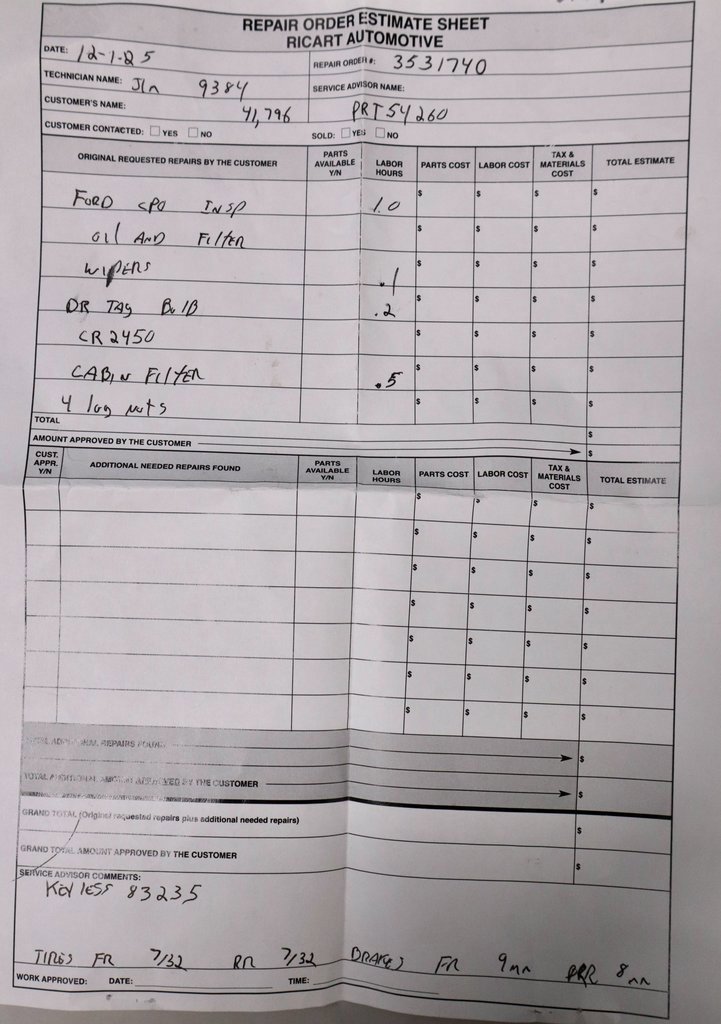 REPAIR ORDER ESTIMATE SHEET
RICART AUTOMOTIVE
DATE: 12-1-25
REPAIR ORDER #: 3531740
TECHNICIAN NAME: Jln 9384
SERVICE ADVISOR NAME:
CUSTOMER'S NAME: 41,796
PRT54260
CUSTOMER CONTACTED: YES NO
SOLD: YES NO
ORIGINAL REQUESTED REPAIRS BY THE CUSTOMER PARTS AVAILABLE Y/N LABOR HOURS PARTS COST LABOR COST TAX & MATERIALS COST TOTAL ESTIMATE
FORD CPO INSP 1.0 $ $ $ $
oil AND FilTER $ $ $ $
WIPERS .1 $ $ $ $
DR TAg BulB .2 $ $ $ $
CR2450 $ $ $ $
CABIN FilTER .5 $ $ $ $
4 lug nuts $ $ $ $
TOTAL $
AMOUNT APPROVED BY THE CUSTOMER $
CUST. APPR. Y/N ADDITIONAL NEEDED REPAIRS FOUND PARTS AVAILABLE Y/N LABOR HOURS PARTS COST LABOR COST TAX & MATERIALS COST TOTAL ESTIMATE
$ $ $ $
$ $ $ $
$ $ $ $
$ $ $ $
$ $ $ $
$ $ $ $
$ $ $ $
TOTAL ADDITIONAL REPAIRS FOUND $
TOTAL ADDITIONAL AMOUNT APPROVED BY THE CUSTOMER $
GRAND TOTAL (Original requested repairs plus additional needed repairs) $
GRAND TOTAL AMOUNT APPROVED BY THE CUSTOMER $
SERVICE ADVISOR COMMENTS:
KEYlESS 83235
TIRES FR 7/32 RR 7/32 BRAKES FR 9mm RR 8mm
WORK APPROVED: DATE: TIME: